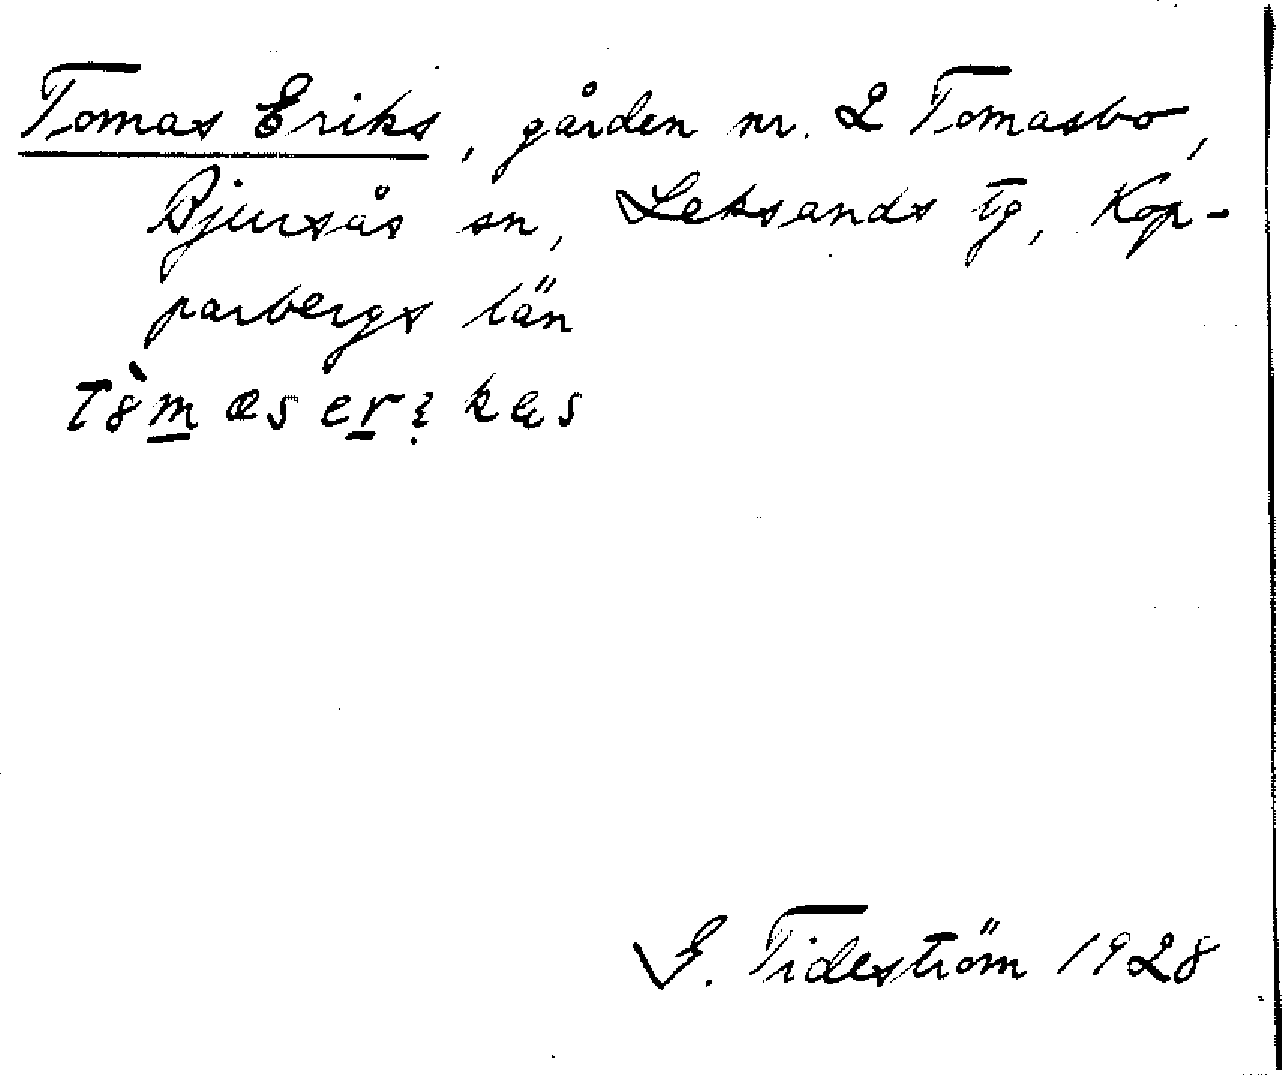 Tomas Eriks, gården nr. 2 Tomasbo,
Bjursås sn, Leksands tg, Kop-
parbergs län
G. Tideström 1928